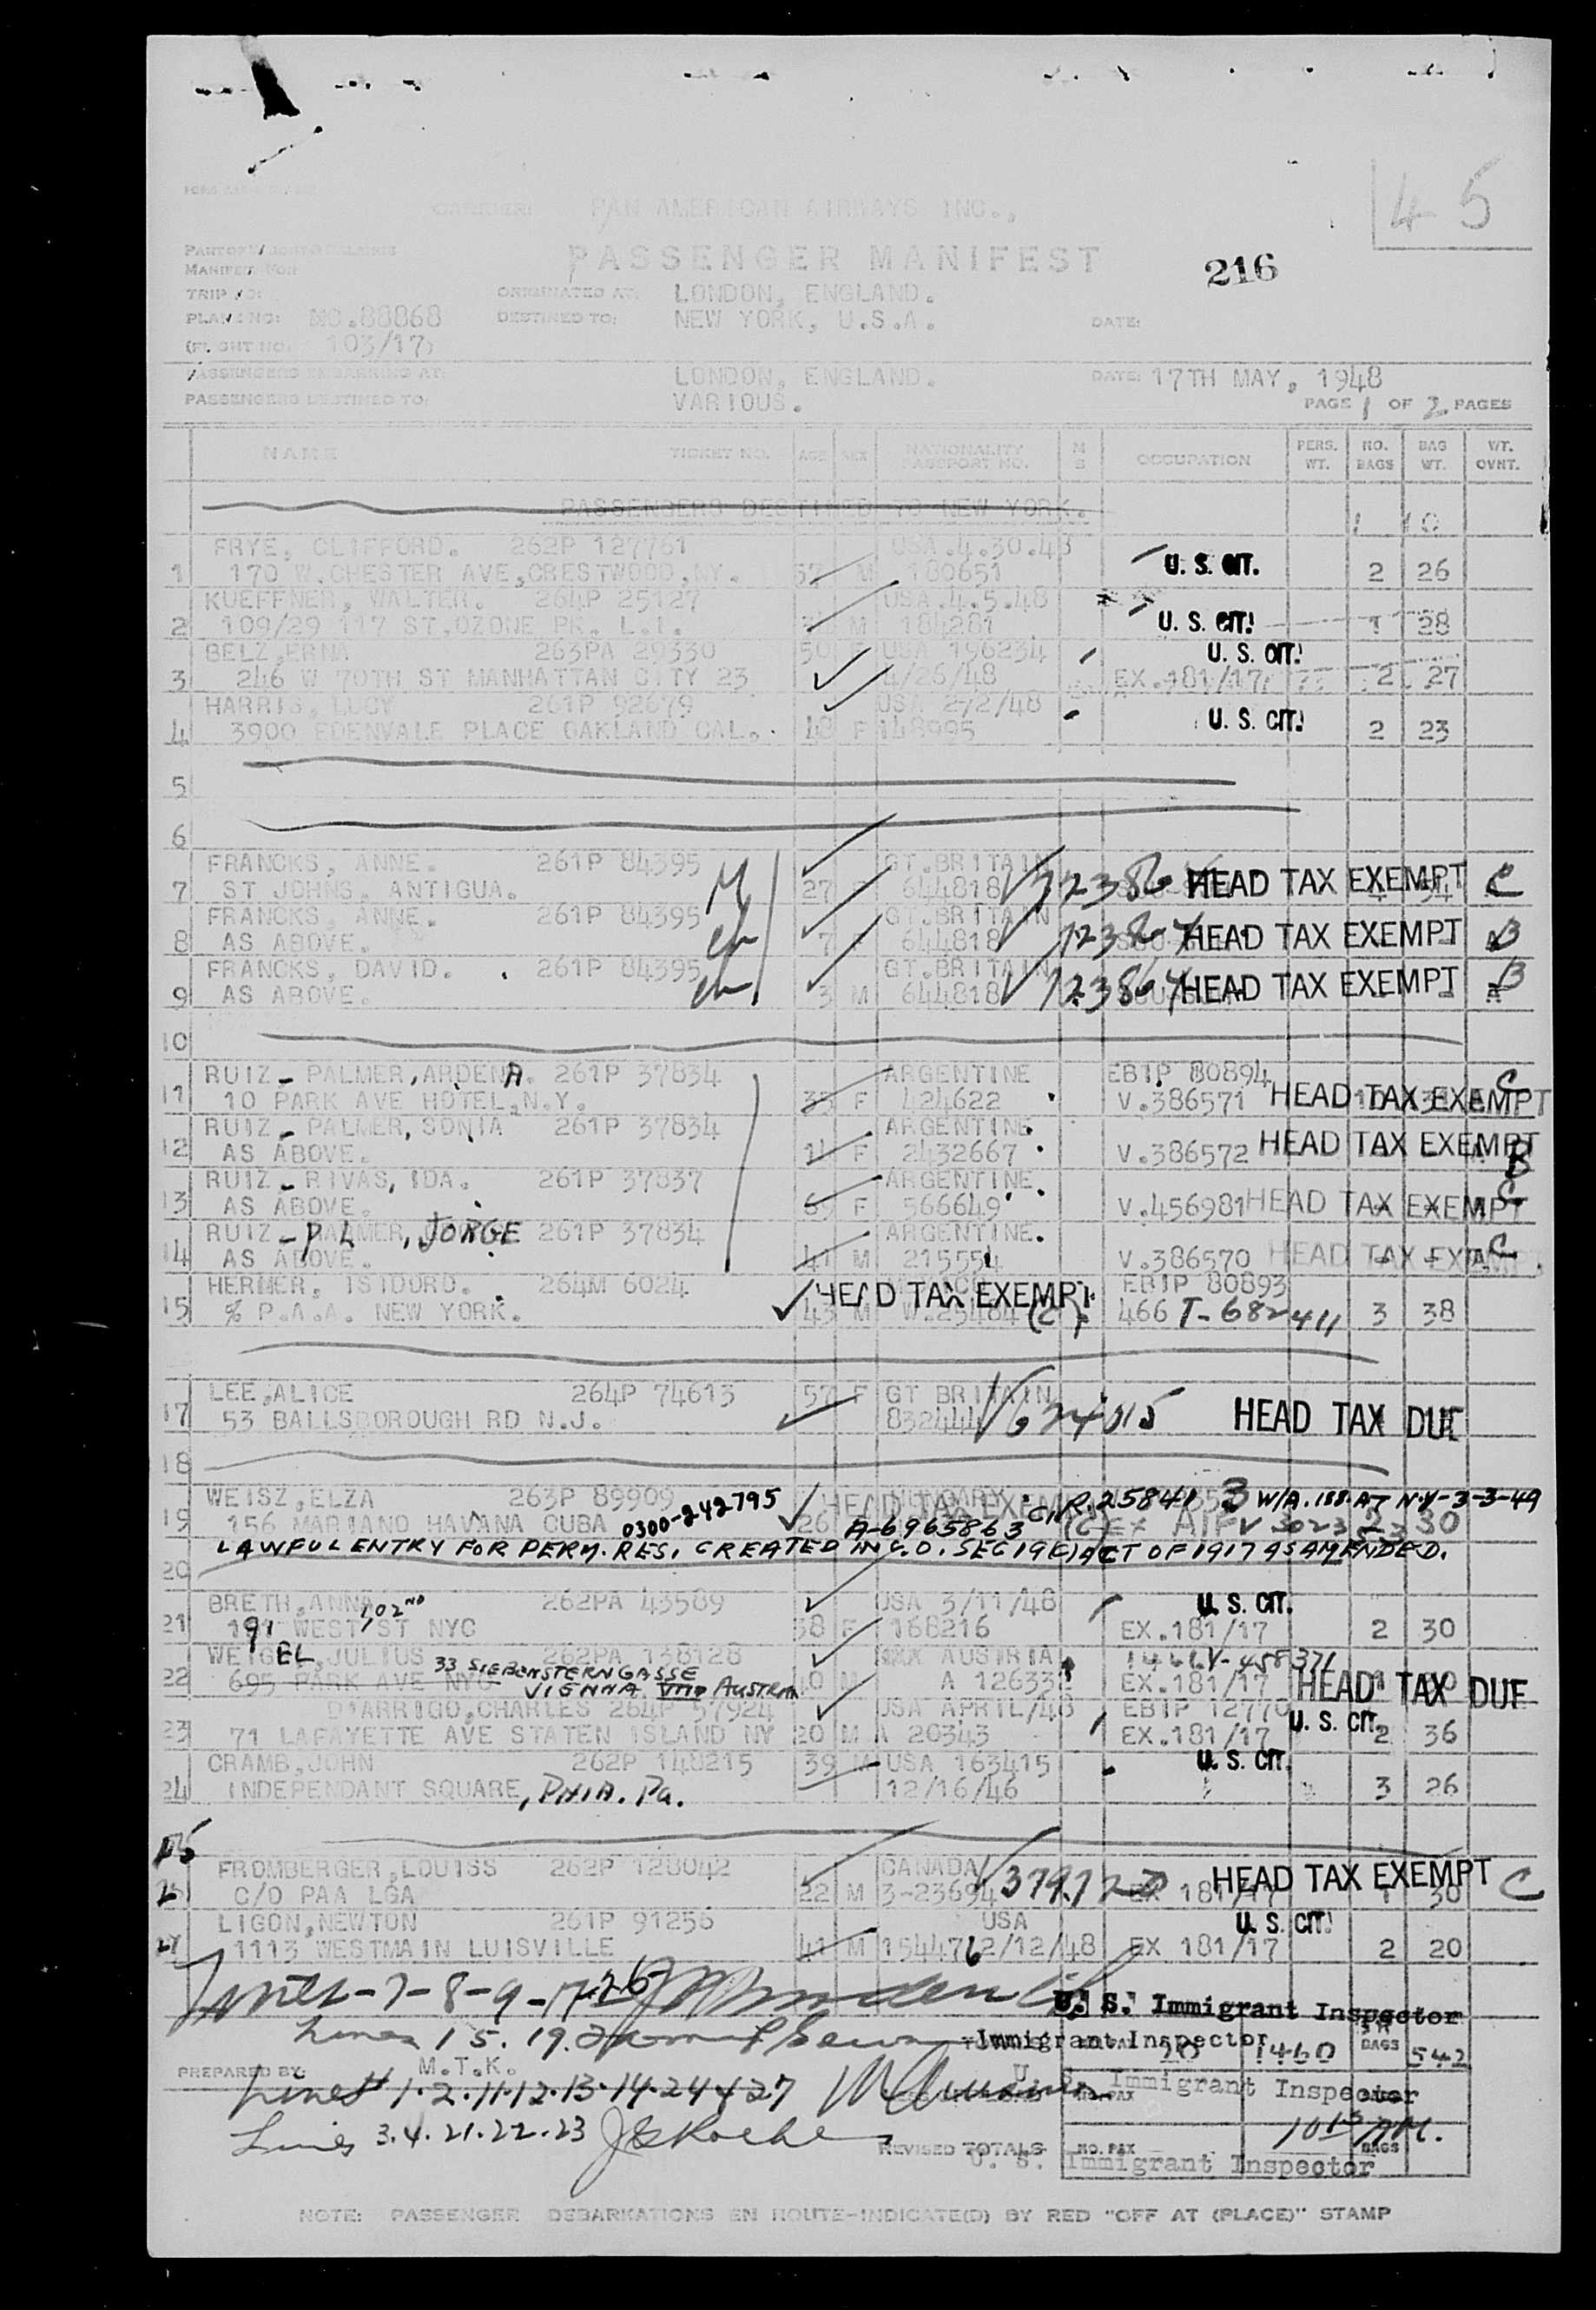 45
CARRIER: PAN AMERICAN AIRWAYS INC.,
PASSENGER MANIFEST
216
MANIFEST
TRIP NO:
ORIGINATED AT: LONDON, ENGLAND.
PLANE NO: NO.88868 DESTINED TO: NEW YORK, U.S.A. DATE:
(FLIGHT NO. 103/17)
PASSENGERS EMBARKING AT: LONDON, ENGLAND. DATE: 17TH MAY, 1948
PASSENGERS DESTINED TO: VARIOUS. PAGE 1 OF 2 PAGES
NAME TICKET NO. AGE SEX NATIONALITY PASSPORT NO. M S OCCUPATION PERS. WT. NO. BAGS BAG WT. WT. OVNT.
PASSENGERS DESTINED TO NEW YORK.
FRYE, CLIFFORD. 262P 127761 USA.4.30.48
1 170 W.CHESTER AVE,CRESTWOOD,NY. 57 M 180651 U. S. CIT. 2 26
KUEFFNER, WALTER. 264P 25127 USA.4.5.48
2 109/29 117 ST.OZONE PK. L.I. M 184281 U. S. CIT. 1 28
BELZ,ERNA 263PA 29330 50 F USA 196234 U. S. CIT.
3 246 W 70TH ST MANHATTAN CITY 23 4/26/48 EX.181/17 2 27
HARRIS, LUCY 261P 92679 USA 2/2/48
4 3900 EDENVALE PLACE OAKLAND CAL. 48 F 148995 U. S. CIT. 2 23
5
6
FRANCKS, ANNE. 261P 84395 GT.BRITAIN
7 ST JOHNS. ANTIGUA. M 27 F 644818 HEAD TAX EXEMPT C
FRANCKS, ANNE. 261P 84395 GT.BRITAIN
8 AS ABOVE. ch 7 F 644818 HEAD TAX EXEMPT B
FRANCKS, DAVID. 261P 84395 GT.BRITAIN
9 AS ABOVE. ch 3 M 644818 123864 HEAD TAX EXEMPT B
10
RUIZ - PALMER,ARDENA. 261P 37834 ARGENTINE EBIP 80894
11 10 PARK AVE HOTEL,N.Y. 35 F 424622 V.386571 HEAD TAX EXEMPT C
RUIZ - PALMER, SONIA 261P 37834 ARGENTINE
12 AS ABOVE. 14 F 2432667 V.386572 HEAD TAX EXEMPT B
RUIZ - RIVAS, IDA. 261P 37837 ARGENTINE
13 AS ABOVE. 69 F 566649 V.456981 HEAD TAX EXEMPT C
RUIZ - PALMER, JORGE 261P 37834 ARGENTINE.
14 AS ABOVE. 41 M 215554 V.386570 HEAD TAX EXEMPT C
HERNER, ISIDORO. 264M 6024 HEAD TAX EXEMPT EBIP 80893
15 % P.A.A. NEW YORK. 43 M W.25484 (C) 466 T-682411 3 38
LEE,ALICE 264P 74613 57 F GT BRITAIN
17 53 BALLSBOROUGH RD N.J. 832444 624015 HEAD TAX DUE
18
WEISZ,ELZA 263P 89909 0300-242795 HUNGARY HEAD TAX EXEMPT CIR.25841 W/A.188.AT N.Y-3-3-49
19 156 MARIANO HAVANA CUBA 26 A-6965863 (C) 30
LAWFUL ENTRY FOR PERM. RES. CREATED IN C.O. SEC 19(E) ACT OF 1917 AS AMENDED.
20
BRETH,ANNA 262PA 43589 USA 3/11/48 U. S. CIT.
21 191 WEST 102ND ST NYC 38 F 168216 EX.181/17 2 30
WEIGEL,JULIUS 262PA 138128 AUSTRIA V-458371
22 695 PARK AVE NYC 33 SIEBENSTERNGASSE VIENNA VII AUSTRIA 40 M A 12633 EX.181/17 HEAD TAX DUE
D'ARRIGO,CHARLES 264P 57924 USA APRIL/48 EBIP 12770
23 71 LAFAYETTE AVE STATEN ISLAND NY 20 M A 20343 EX.181/17 U. S. CIT. 2 36
CRAMB,JOHN 262P 148215 39 M USA 163415 U. S. CIT.
24 INDEPENDANT SQUARE, PHIA. Pa. 12/16/46 3 26
FROMBERGER,LOUISS 262P 128042 CANADA
C/O PAA LGA 22 M 3-23694 EX 181/17 HEAD TAX EXEMPT 1 30 C
LIGON,NEWTON 261P 91256 USA U. S. CIT.
27 1113 WESTMAIN LUISVILLE 41 M 154476 2/12/48 EX 181/17 2 20
Lines-7-8-9-17-26
U. S. Immigrant Inspector
Lines 15.19. Immigrant Inspector 20 1460 BAGS 542
PREPARED BY: M.T.K. U. S. Immigrant Inspector
Lines 1.2.11.12.13.14.24 & 27
1015 AM.
Lines 3.4.21.22.23
REVISED TOTALS NO. PAX BAGS
U. S. Immigrant Inspector
NOTE: PASSENGER DEBARKATIONS EN ROUTE-INDICATE(D) BY RED "OFF AT (PLACE)" STAMP